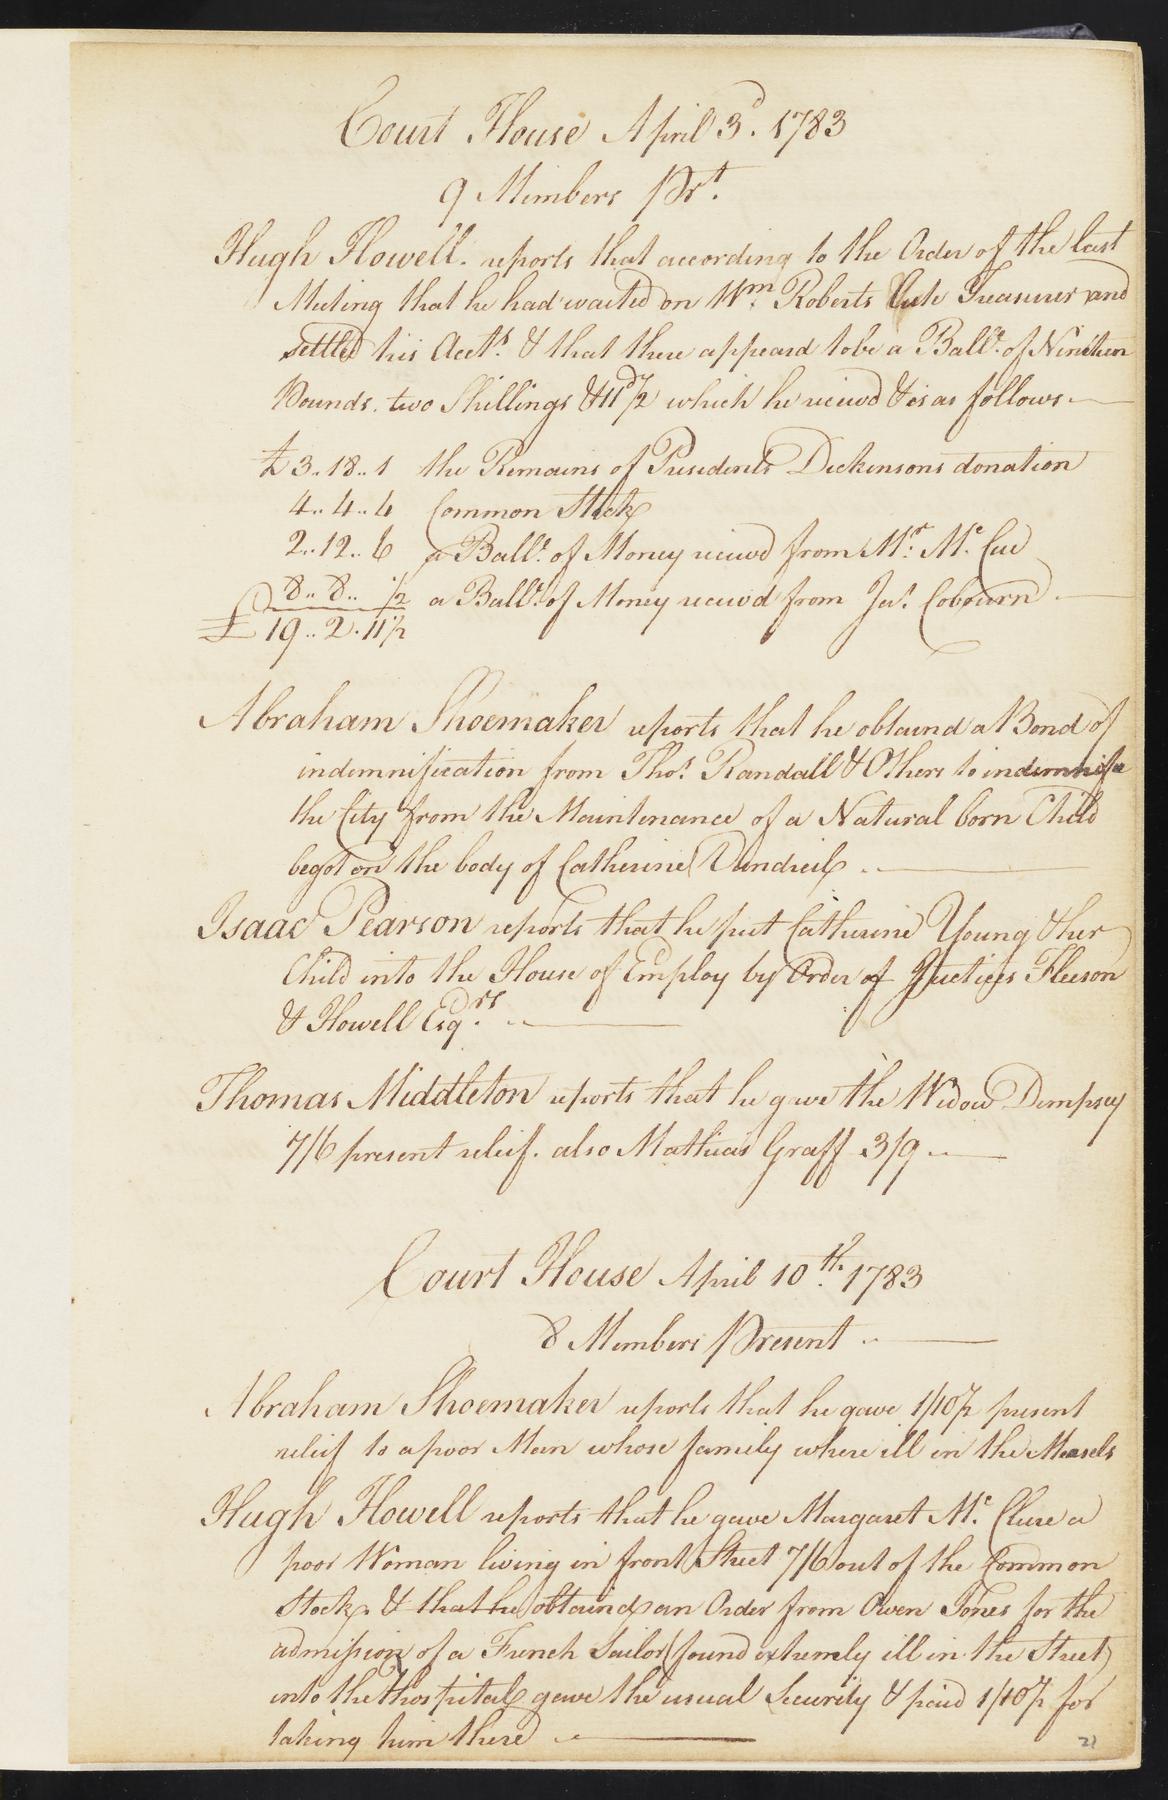 Court House April 3d. 1783
9 Members Prst.
Hugh Howell. reports that according to the Order of the last
Meeting that he had waited on Wm. Roberts late Treasurer and
settled his Acets. & that there appeard to be a Balle. of Nineteen
Pounds. two Shillings & 11d½ which he recievd & is as follows —
£ 3..18..1 the Remains of Presidents Dickensons donation
4..4..4 Common Stock
2..12..6 a Balle. of Money recievd from Mr. Mc. Cue
8..8.. ½ a Balle. of Money recievd from Jas. Cobourn —
£ 19..2.11½
Abraham Shoemaker reports that he obtaind a Bond of
indemnification from Thos. Randall & Others to indemnife
the City from the Maintenance of a Natural born Child
begot on the body of Catherine —
Isaac Pearson reports that he put Catherine Young & her
Child into the House of Employ by Order of Justices Fleeson
& Howell Esqrs. —
Thomas Middleton reports that he gave the Widow Dempsey
7/6 present relief. also Mathias Graff 3/9 —
Court House April 10th. 1783
8 Members Present —
Abraham Shoemaker reports that he gave 1/10½ present
relief to a poor Man whose family where ill in the Measels
Hugh Howell reports that he gave Margaret Mc. Clure a
poor Woman living in front Street 7/6 out of the Common
Stock. & that he obtaind an Order from Owen Jones for the
admission of a French Sailor (found extremely ill in the Street)
into the Hospital gave the usual Security & paid 1/10½ for
taking him there —
21